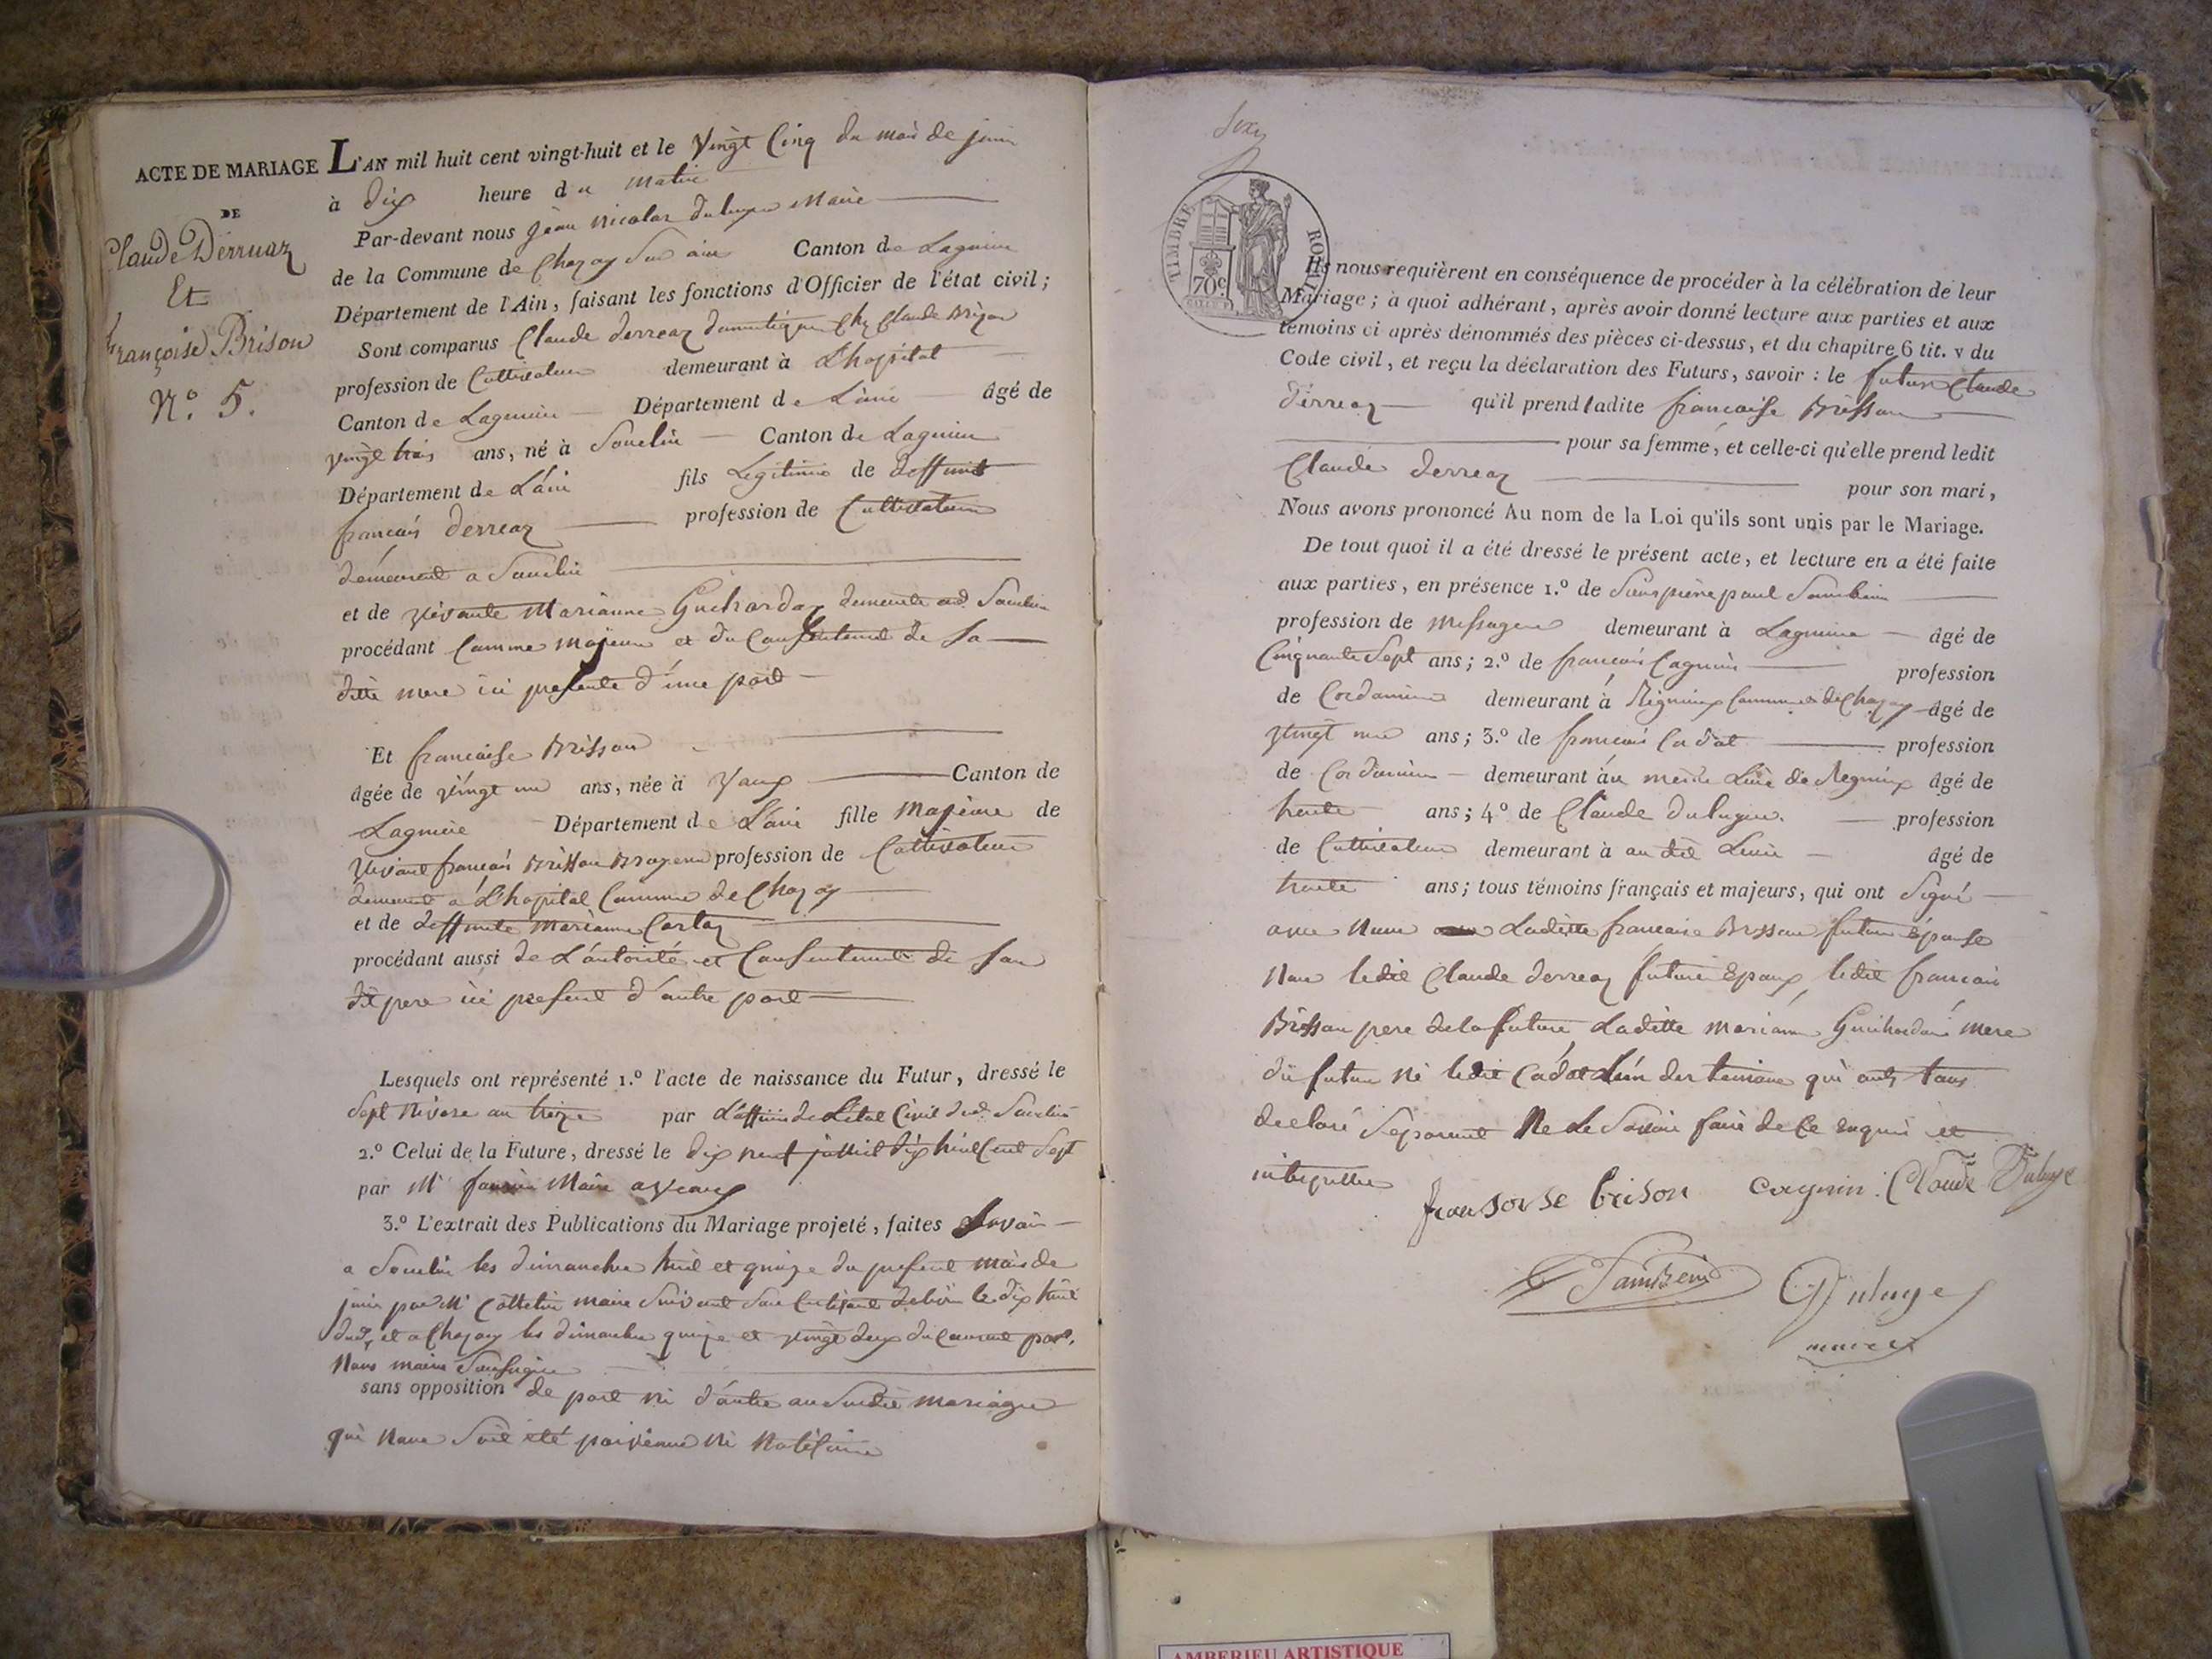 ACTE DE MARIAGE
DE
Claude Derruaz
Et
Françoise Brison
N.º 5.
L'AN mil huit cent vingt-huit et le Vingt Cinq du mois de juin
à dix heure du matin
Par-devant nous jean nicolas duluye Maire
de la Commune de Chazay Sur ain Canton de Lagnieu
Département de l'Ain, faisant les fonctions d'Officier de l'état civil;
Sont comparus Claude derreaz domestique chez Claude Brizon
profession de Cultivateur demeurant à L'hopital
Canton de Lagnieu Département de L'ain âgé de
vingt trois ans, né à Souclin Canton de Lagnieu
Département de L'ain fils Legitime de deffunt
francais derreaz profession de Cultivateur
demeurant a Souclin
et de vivante Marianne Guichardaz demeurte aud. Souclin
procédant Comme majeur et du Consentement de sa
ditte mere ici presente d'une part
Et francaise Brisson
âgée de vingt un ans, née à Vaux Canton de
Lagnieu Département de L'ain fille Majeure de
vivant francais Brisson profession de Cultivateur
demeurant a L'hopital Commune de Chazay
et de deffunte Marianne Cortaz
procédant aussi de L'autorité et Consentement de son
dit pere ici present d'autre part
Lesquels ont représenté 1.º l'acte de naissance du Futur, dressé le
Sept Nivose an treize par L'officier de L'état Civil dud. Souclin
2.º Celui de la Future, dressé le dix neuf juillet dix huit Cent Sept
par Mr Maire a Vaux
3.º L'extrait des Publications du Mariage projeté, faites Savoir
a Souclin les dimanches huit et quinze du present mois de
juin par Mr Cottetin maire Suivant Son Certificat delivré le dix huit
dud, et a Chazay les dimanches quinze et vingt deux du Courant par
Nous maire Soussigné
sans opposition de part ni d'autre au Susdit mariage
qui Nous Soit été parvenue Ni Notifiée
TIMBRE ROYAL
70c
Ils nous requièrent en conséquence de procéder à la célébration de leur
Mariage; à quoi adhérant, après avoir donné lecture aux parties et aux
témoins ci après dénommés des pièces ci-dessus, et du chapitre 6 tit. v du
Code civil, et reçu la déclaration des Futurs, savoir: le futur Claude
derreaz qu'il prend ladite francaise Brisson
pour sa femme, et celle-ci qu'elle prend ledit
Claude derreaz pour son mari,
Nous avons prononcé Au nom de la Loi qu'ils sont unis par le Mariage.
De tout quoi il a été dressé le présent acte, et lecture en a été faite
aux parties, en présence 1.º de Sieur pierre paul Sambein
profession de Messager demeurant à Lagnieu âgé de
Cinquante Sept ans; 2.º de francois Cagnin profession
de Cordonnier demeurant à Rignieux Commune de Chazay âgé de
vingt un ans; 3.º de francois Cadot profession
de Cordonnier demeurant au meme Lieu de Regnieux âgé de
trente ans; 4.º de Claude duluye profession
de Cultivateur demeurant à au dit Lieu âgé de
trente ans; tous témoins français et majeurs, qui ont Signé
avec Nous Laditte francaise Brisson future Epouse
Non ledit Claude derreaz futur Epoux, ledit francois
Brisson pere de la future Laditte Mariann Guichardaz mere
du futur Ni ledit Cadot L'un des temoins qui ont tous
declaré Séparement Ne Le Savoir faire de Ce requis et
interpellés
fransoise brison cagnin Claude Duluye
Sambein Duluye
maire
AMBERIEU ARTISTIQUE